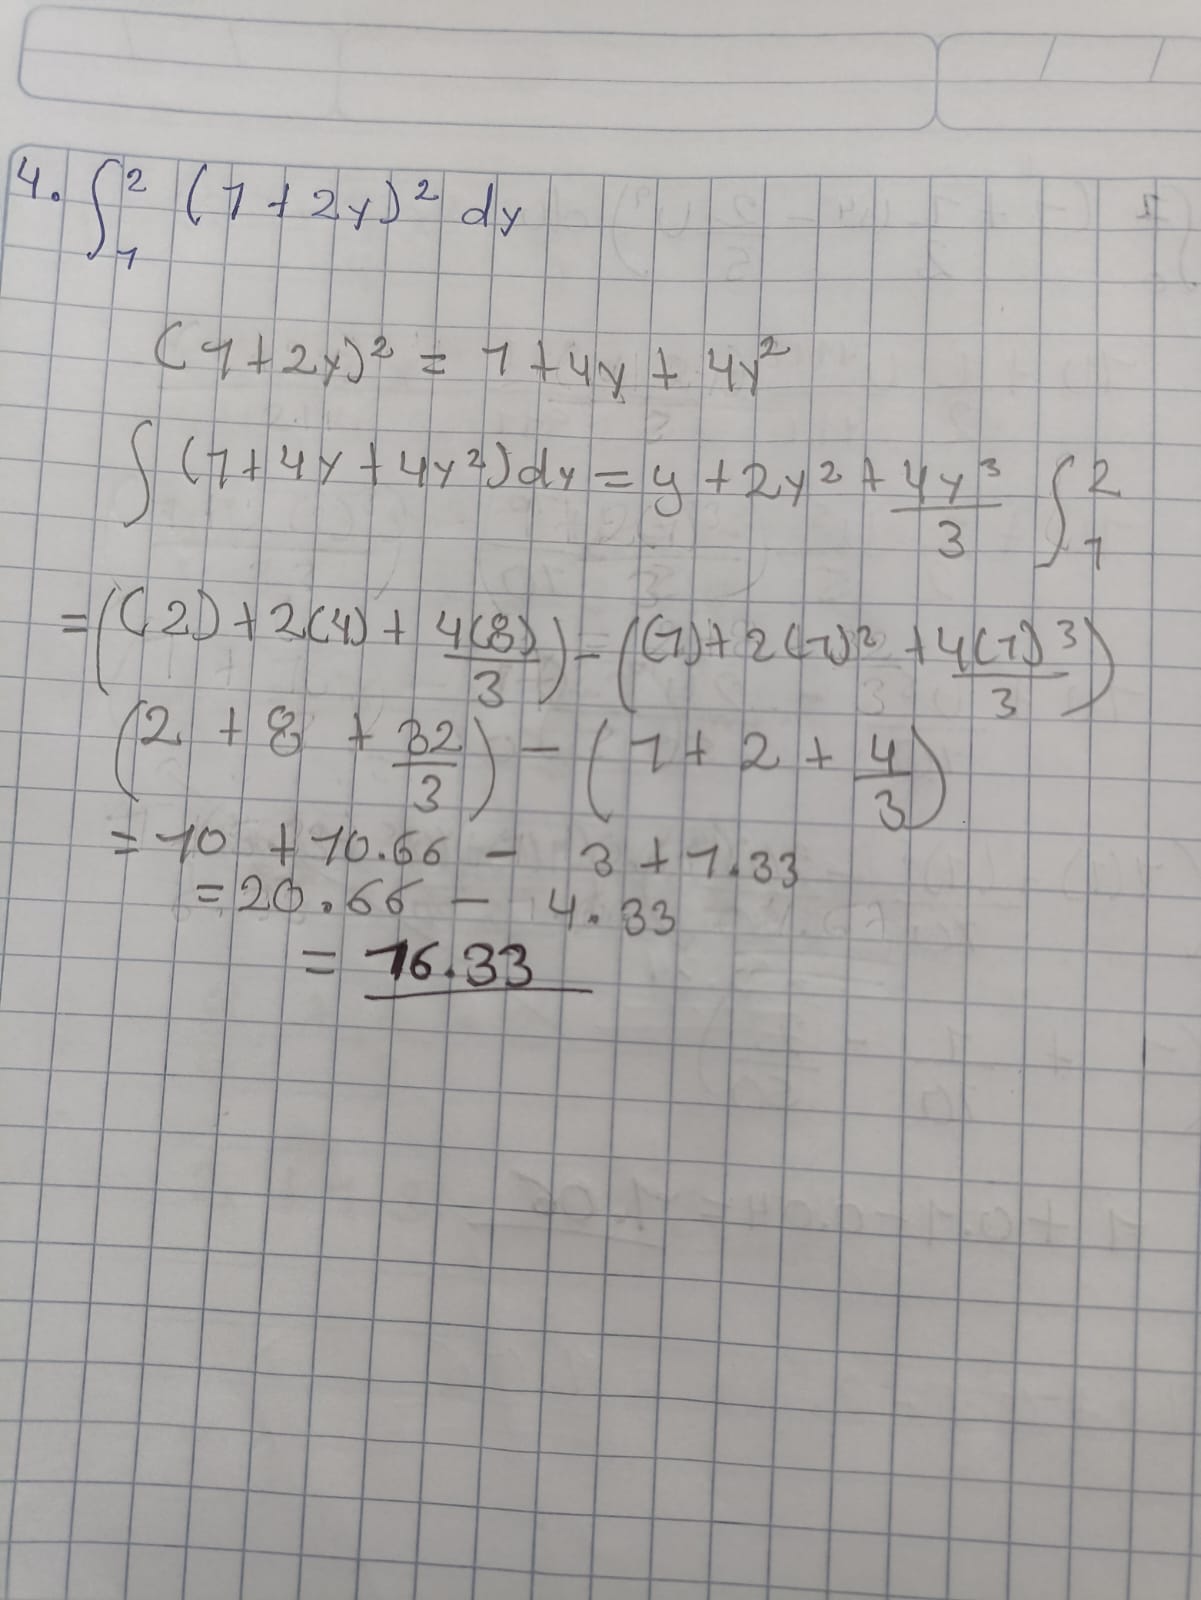 4. ∫₁² (1 + 2y)² dy
(1 + 2y)² = 1 + 4y + 4y²
∫ (1 + 4y + 4y²) dy = y + 2y² + 4y³/3 ∫₁²
= ((2) + 2(4) + 4(8)/3) - ((1) + 2(1)² + 4(1)³/3)
(2 + 8 + 32/3) - (1 + 2 + 4/3)
= 10 + 10.66 - 3 + 1.33
= 20.66 - 4.33
= 16.33